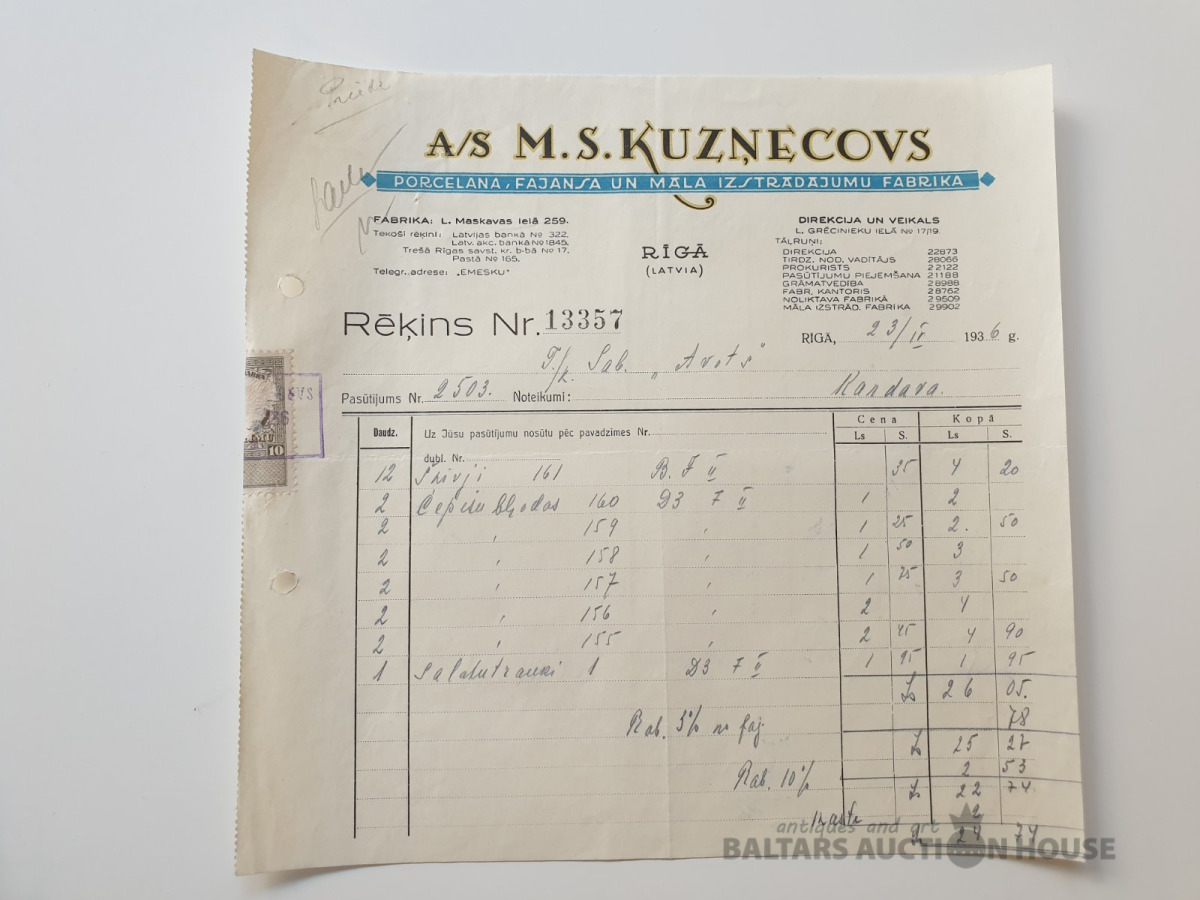 A/S M.S.KUZŅECOVS
PORCELANA, FAJANSA UN MĀLA IZSTRĀDĀJUMU FABRIKA
FABRIKA: L. Maskavas ielā 259.
Tekoši rēķini: Latvijas bankā No 322.
Latv. akc. bankā No 1845.
Trešā Rīgas savst. kr. b-bā No 17.
Pastā No 165.
Telegr. adrese: „EMESKU"
RĪGĀ
(LATVIA)
DIREKCIJA UN VEIKALS
L. GRĒCINIEKU IELĀ No 17/19.
TĀLRUŅI:
DIREKCIJA 22873
TIRDZ. NOD. VADĪTĀJS 28066
PROKURISTS 22122
PASŪTĪJUMU PIEJEMŠANA 21188
GRĀMATVEDĪBA 28988
FABR. KANTORIS 28762
NOLIKTAVA FABRIKĀ 29509
MĀLA IZSTRĀD. FABRIKA 29902
Rēķins Nr. 13357
RĪGĀ, 23/IV 1936 g.
Sab. „Avots"
Pasūtījums Nr. 2503. Noteikumi: Kandava.
Daudz. Uz Jūsu pasūtījumu nosūtu pēc pavadzīmes Nr. Cena Kopā
Ls S. Ls S.
dubl. Nr.
12 Šķivji 161 B. F II 35 4 20
2 Cepešu bļodas 160 D3 7 II 1 2
2 " 159 " 1 25 2. 50
2 " 158 " 1 50 3
2 " 157 " 1 75 3 50
2 " 156 " 2 4
2 " 155 " 2 45 4 90
1 Salatutrauki 1 D3 7 II 1 95 1 95
Ls 26 05.
Rab. 3% no faj. 78
Ls 25 27
Rab. 10% 2 53
Ls 22 74
2
Ls 24 74
10
antiques and art
BALTARS AUCTION HOUSE